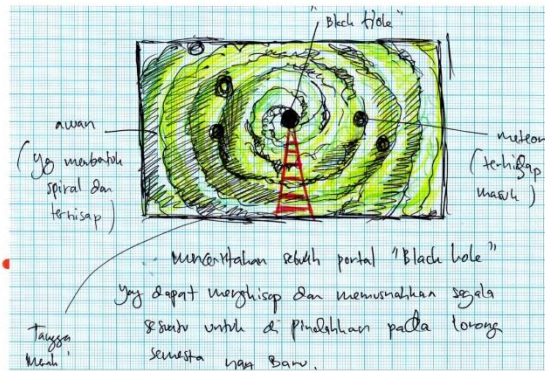 "Black Hole"
awan
(yg membentuk
spiral dan
terhisap)
meteor
(terhisap
masuk)
Menceritakan sebuah portal "Black hole"
yg dapat menghisap dan memusnahkan segala
sesuatu untuk di pindahkan pada lorong
semesta yang Baru.
Tangga
Merah